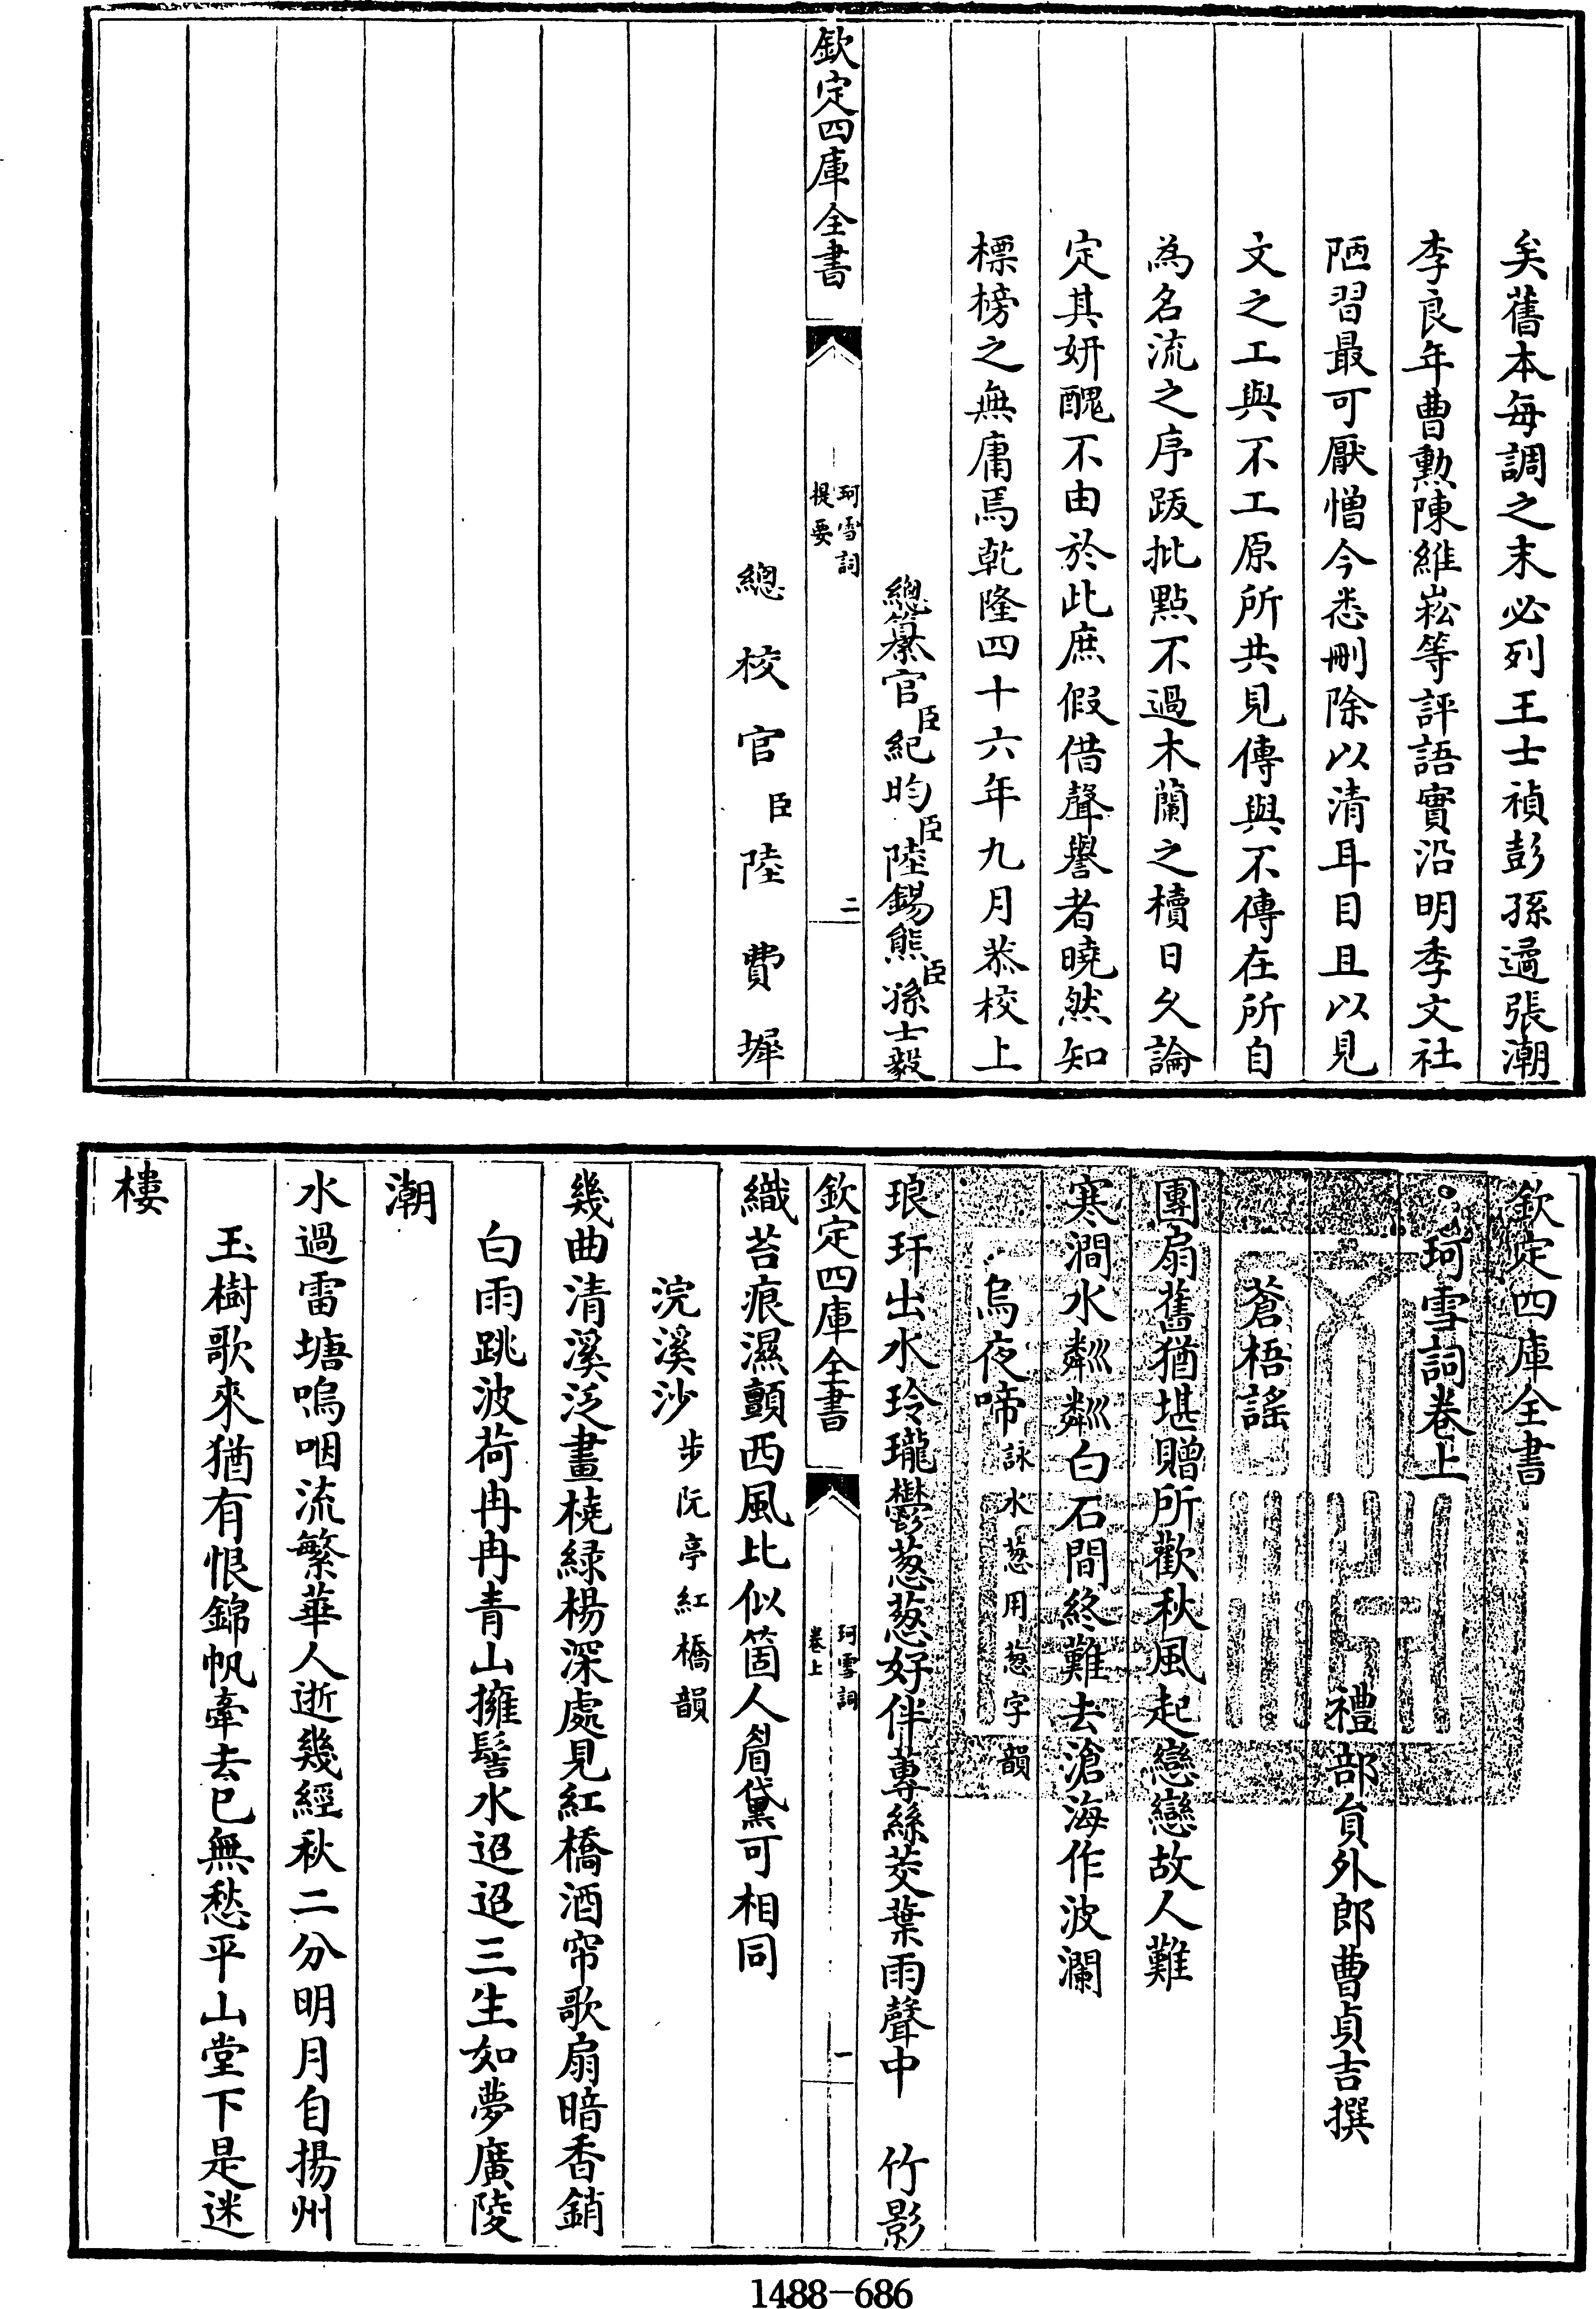 矣舊本每調之末必列王士禎彭孫遹張潮
李良年曹勲陳維崧等評語實沿明季文社
陋習最可厭憎今悉刪除以清耳目且以見
文之工與不工原所共見傳與不傳在所自
為名流之序跋批點不過木蘭之櫝日久論
定其妍醜不由於此庶假借聲譽者曉然知
標榜之無庸焉乾隆四十六年九月恭校上
總纂官臣紀昀臣陸錫熊臣孫士毅
欽定四庫全書
珂雪詞
提要
二
總校官臣陸費墀
欽定四庫全書
珂雪詞卷上
禮部員外郎曹貞吉撰
蒼梧謠
團扇舊猶堪贈所歡秋風起戀戀故人難
寒澗水粼粼白石間終難去滄海作波瀾
烏夜啼詠水葱用葱字韻
琅玕出水玲瓏鬱葱葱好伴蓴絲茭葉雨聲中 竹影
欽定四庫全書
珂雪詞
卷上
一
織苔痕濕顫西風比似箇人眉黛可相同
浣溪沙步阮亭紅橋韻
幾曲清溪泛畫橈緑楊深處見紅橋酒帘歌扇暗香銷
白雨跳波荷冉冉青山擁髻水迢迢三生如夢廣陵
潮
水過雷塘嗚咽流繁華人逝幾經秋二分明月自揚州
玉樹歌來猶有恨錦帆牽去已無愁平山堂下是迷
樓
1488-686